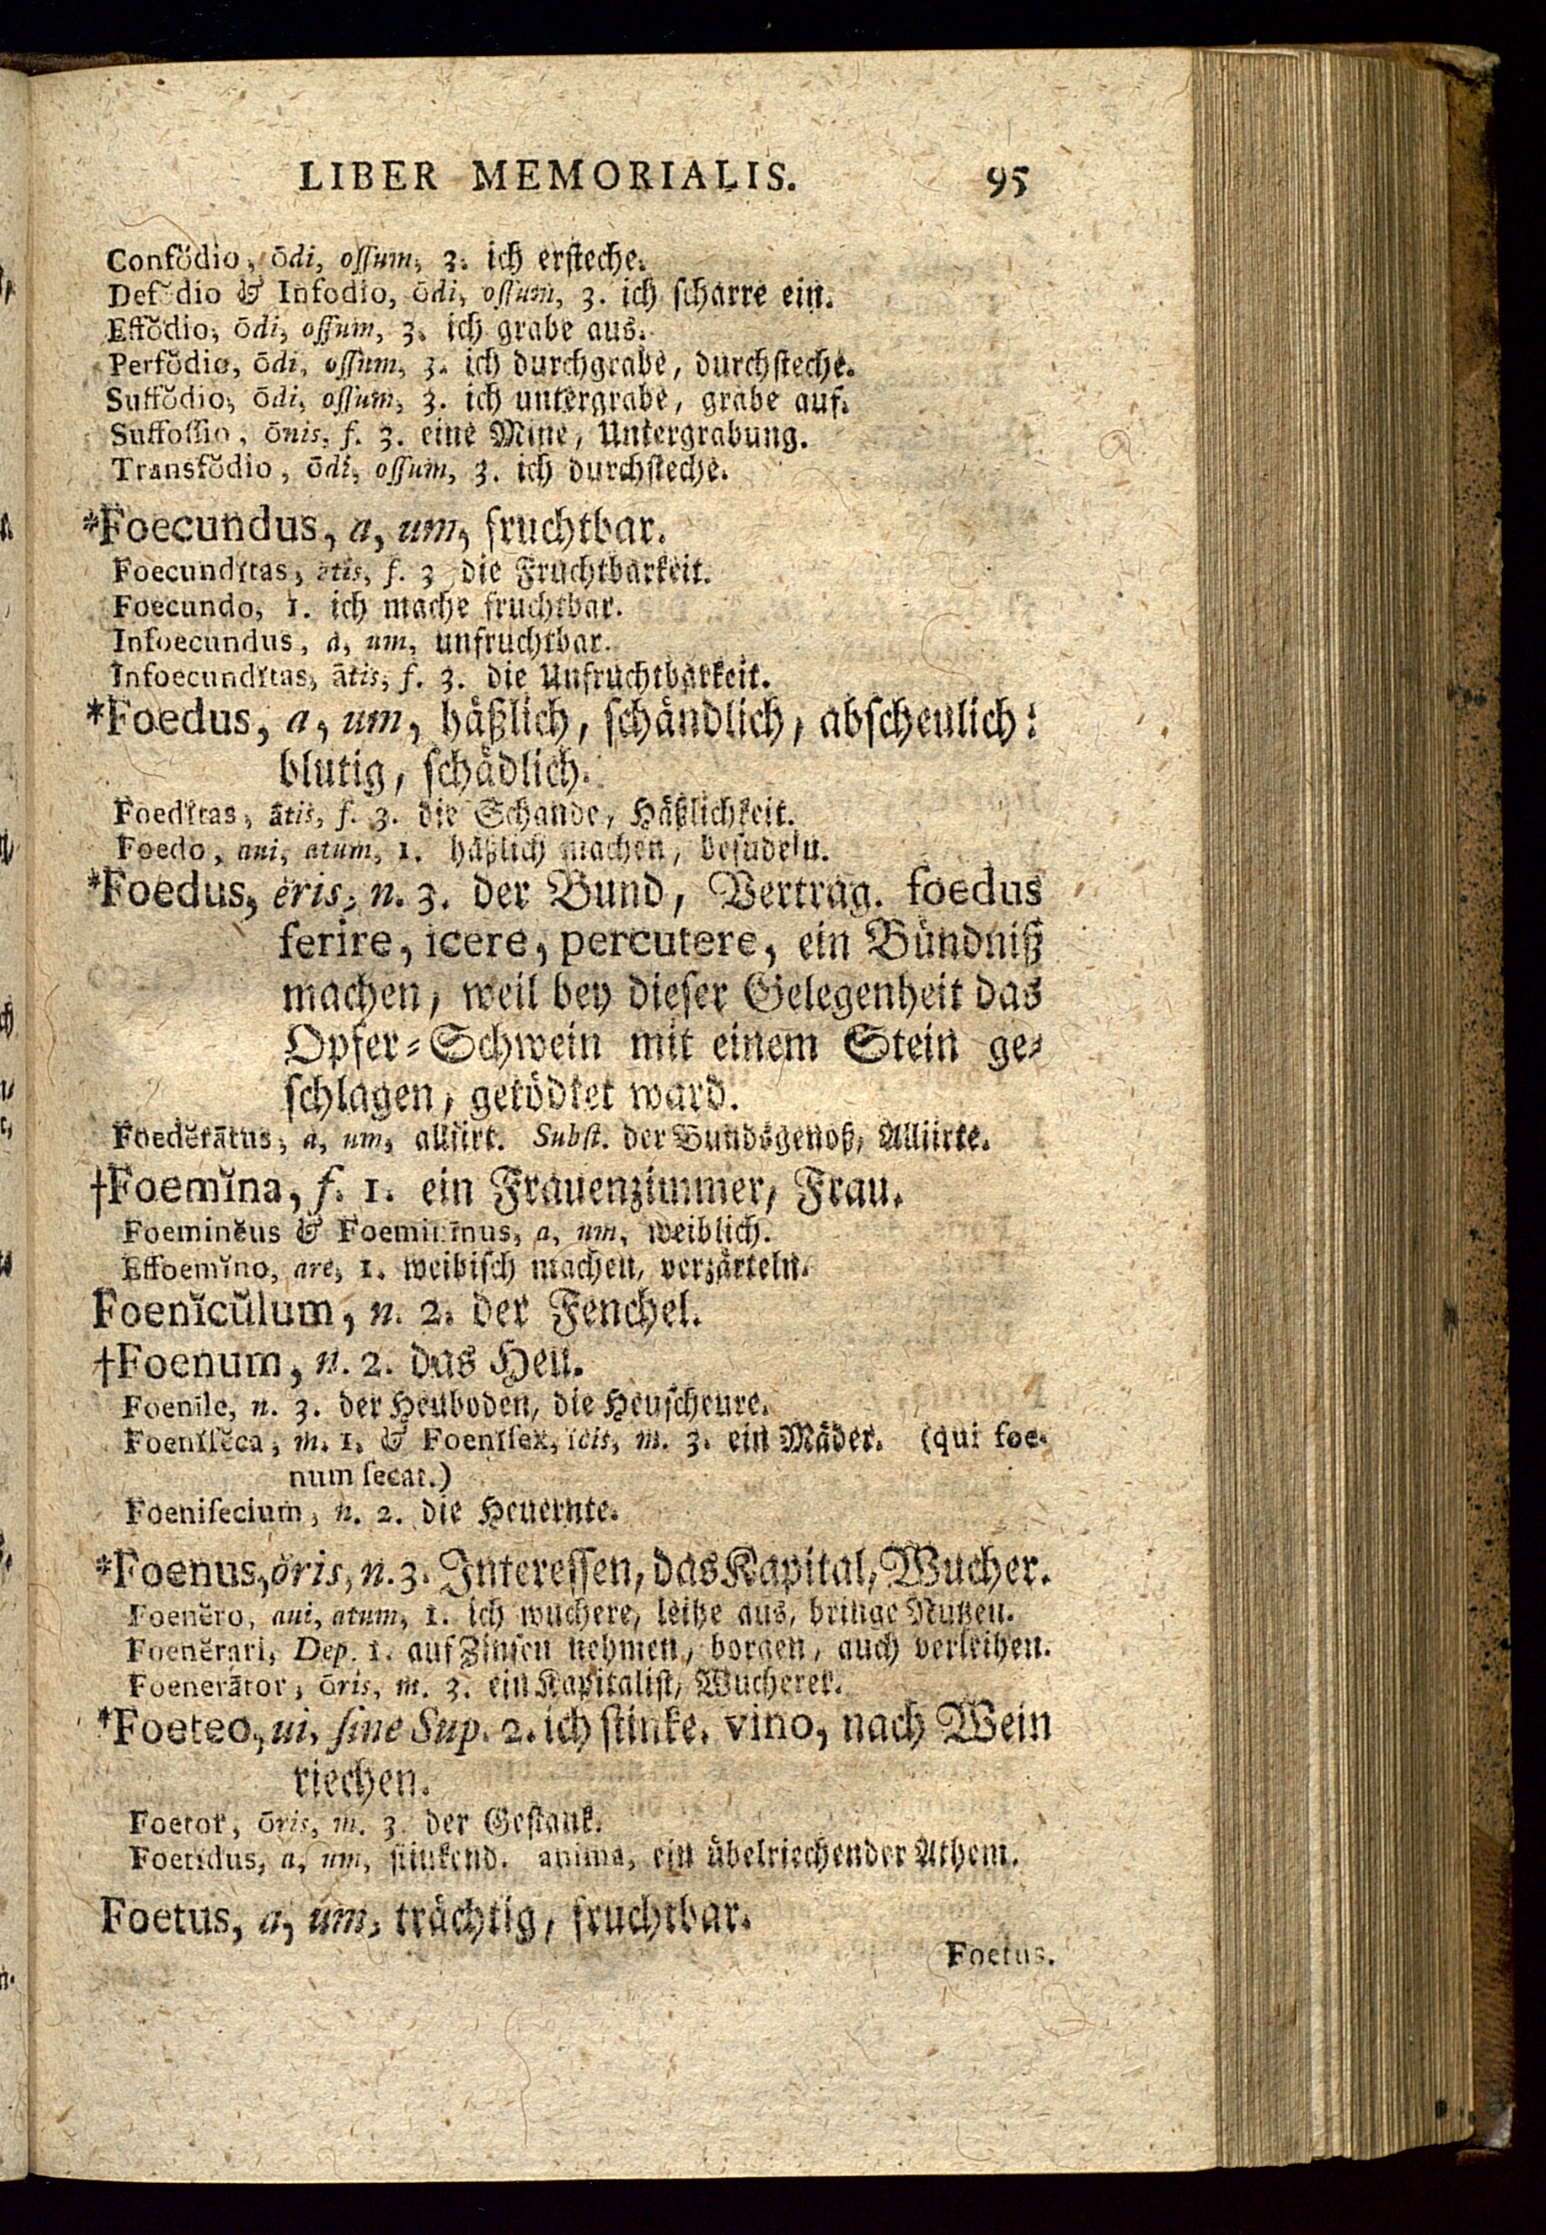 LIBER MEMORIALIS. 95
Confŏdio, ōdi, oſſum, 3. ich erſteche.
Defŏdio & Infodio, ōdi, oſſum, 3. ich ſcharre ein.
Effŏdio, ōdi, oſſum, 3. ich grabe aus.
Perfŏdio, ōdi, oſſum, 3. ich durchgrabe, durchſteche.
Suffŏdio, ōdi, oſſum, 3. ich untergrabe, grabe auf.
Suffoſſio, ōnis, f. 3. eine Mine, Untergrabung.
Transfŏdio, ōdi, oſſum, 3. ich durchſteche.
*Foecundus, a, um, fruchtbar.
Foecundĭtas, ātis, f. 3 die Fruchtbarkeit.
Foecundo, 1. ich mache fruchtbar.
Infoecundus, a, um, unfruchtbar.
Infoecundĭtas, ātis, f. 3. die Unfruchtbarkeit.
*Foedus, a, um, häßlich, ſchändlich, abſcheulich:
blutig, ſchädlich.
Foedĭtas, ātis, f. 3. die Schande, Häßlichkeit.
Foedo, aui, atum, 1. häßlich machen, beſudeln.
*Foedus, ĕris, n. 3. der Bund, Vertrag. foedus
ferire, icere, percutere, ein Bündniß
machen, weil bey dieſer Gelegenheit das
Opfer-Schwein mit einem Stein ge-
ſchlagen, getödtet ward.
Foedĕrātus, a, um, alliirt. Subſt. der Bundsgenoß, Alliirte.
†Foemĭna, f. 1. ein Frauenzimmer, Frau.
Foeminĕus & Foeminīnus, a, um, weiblich.
Effoemĭno, are, 1. weibiſch machen, verzärteln.
Foenĭcŭlum, n. 2. der Fenchel.
†Foenum, n. 2. das Heu.
Foenīle, n. 3. der Heuboden, die Heuſcheure.
Foenĭſĕca, m. 1. & Foenĭſex, ĭcis, m. 3. ein Mäder. (qui foe-
num ſecat.)
Foeniſecium, n. 2. die Heuernte.
*Foenus, ŏris, n. 3. Intereſſen, das Kapital, Wucher.
Foenĕro, aui, atum, 1. ich wuchere, leihe aus, bringe Nutzen.
Foenĕrari, Dep. 1. auf Zinſen nehmen, borgen, auch verleihen.
Foenerātor, ōris, m. 3. ein Kapitaliſt, Wucherer.
*Foeteo, ui, ſine Sup. 2. ich ſtinke. vino, nach Wein
riechen.
Foetor, ōris, m. 3. der Geſtank.
Foetidus, a, um, ſtinkend. anima, ein übelriechender Athem.
Foetus, a, um, trächtig, fruchtbar.
Foetus.